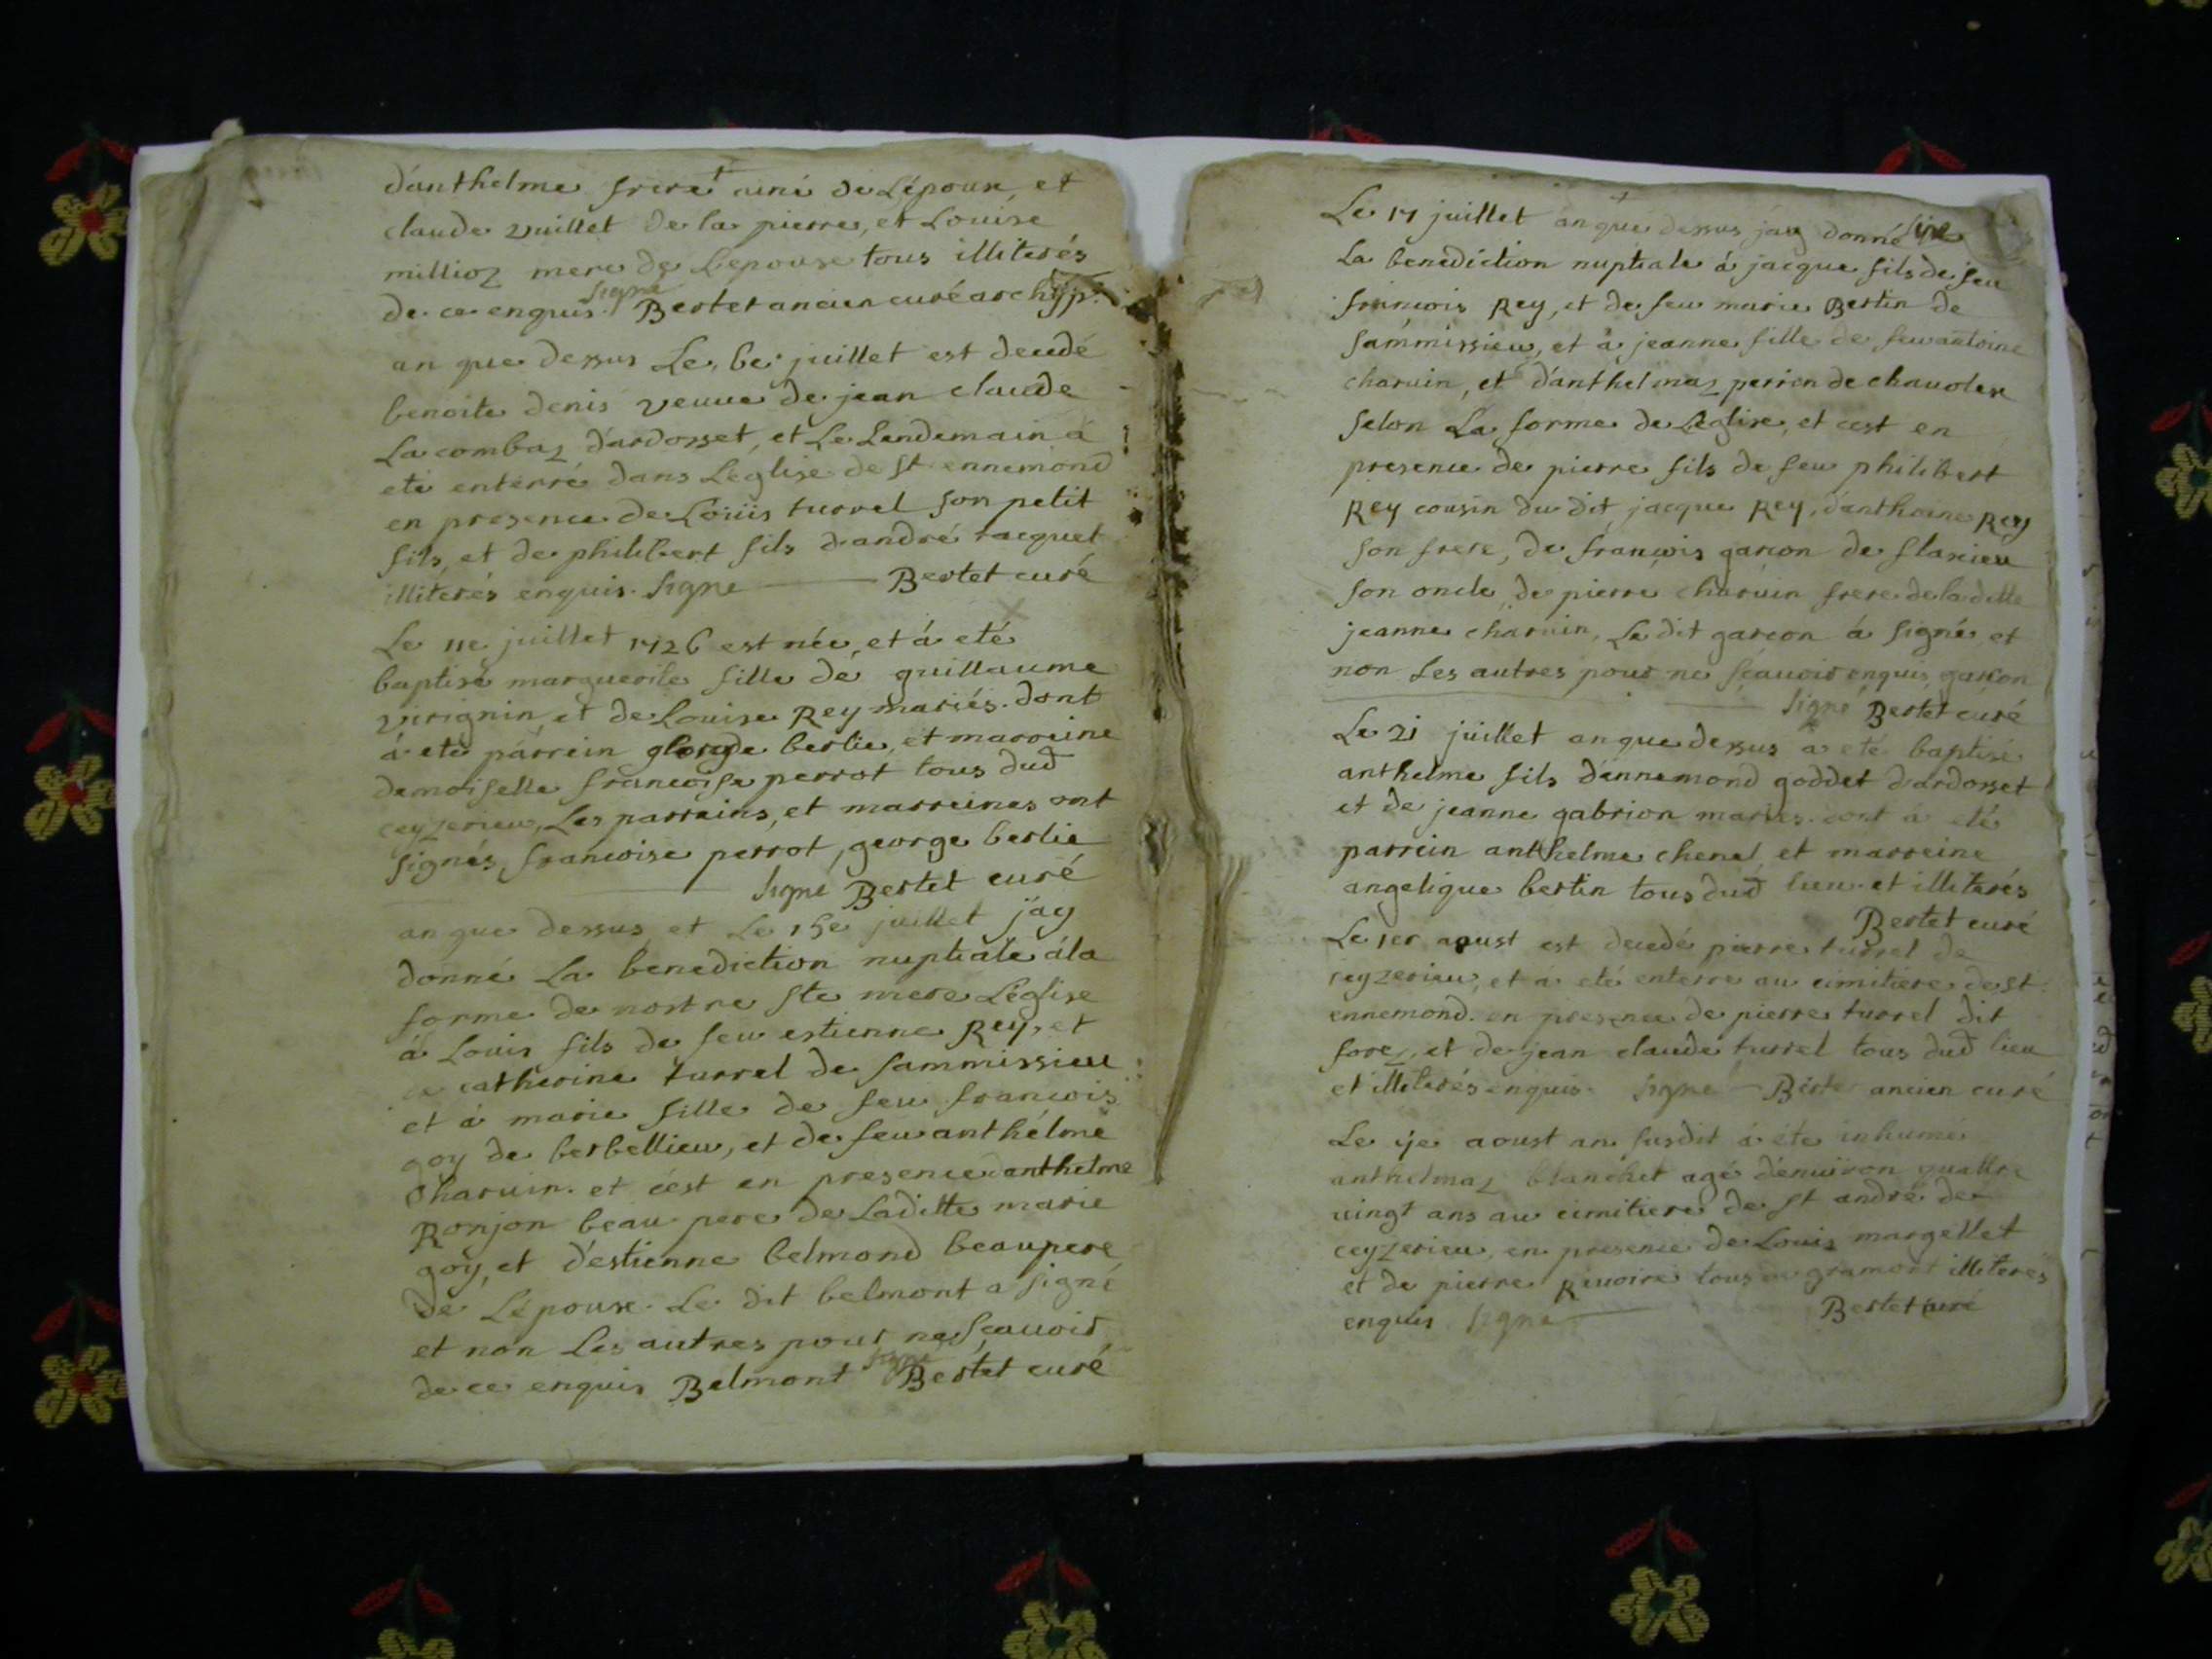 d'anthelme frere ainé de L'épouse, et
claude vuillet de la pierre, et Louise
millioz mere de L'epouse tous illiterés
de ce enquis. signé Bertet ancien curé archyp.
an que dessus Le, 6e juillet est decedé
benoite denis veuve de jean claude
La combaz d'ardosset, et Le Lendemain á
eté enterré dans L'eglise de st ennemond
en presence de Loüis turrel son petit
fils, et de philibert fils d'andré racquet
illiterés enquis. signé Bertet curé
Le 11e juillet 1726 est née, et á eté
baptisé marguerite fille de guillaume
virignin et de Louise Rey mariés. dont
á eté parrein george berlie, et marreine
demoiselle francoise perrot tous dud
ceyzerieu, Les parreins, et marreines ont
signés, francoise perrot, george berlie
signé Bertet curé
an que dessus et Le 15e juillet j'ay
donné La benediction nuptiale á la
forme de nostre ste mere L'église
á Louis fils de feu estienne Rey, et
de catherine turrel de sammissieu
et á marie fille de feu francois
goy de berbellieu, et de feu anthélme
charuin. et c'est en presence d'anthelme
Ronjon beau pere de Laditte marie
goy, et d'estienne belmond beaupere
de L'épouse. Le dit belmont a signé
et non Les autres pour ne sçauoir
de ce enquis Belmont signé Bertet curé
Le 17 juillet an que dessus j'ay donné
La benediction nuptiale á jacque fils de feu
francois Rey, et de feu marie Bertin de
sammissieu, et á jeanne fille de feu antoine
charuin, et d'anthelmaz perrin de chauolex
selon La forme de L'eglise, et c'est en
presence de pierre fils de feu philibert
Rey cousin du dit jacque Rey, d'anthoine Rey
son frere, de françois garçon de flaxieu
son oncle, de pierre charuin frere de la ditte
jeanne charuin, Le dit garçon á signé, et
non Les autres pour ne sçauoir enquis, garçon
signé Bertet curé
Le 21 juillet an que dessus a eté baptisé
anthelme fils d'ennemond goddet d'ardosset
et de jeanne gabrion mariés. dont a eté
parrein anthelme chenel, et marreine
angelique bertin tous dud lieu et illiterés
Bertet curé
Le 1er aoust est decedé pierre turrel de
ceyzerieu, et a eté enterré au cimitiere de st.
ennemond. en presence de pierre turrel dit
forez, et de jean claude turrel tous dud lieu
et illiterés enquis. signé Bertet ancien curé
Le aoust an susdit á éte inhumé
anthelmaz blanchet agé d'enuiron quattre
uingt ans au cimitiere de st andré de
ceyzerieu, en presence de Louis margellet
et de pierre Riuoire tous de gramont illiterés
enquis signé Bertet curé